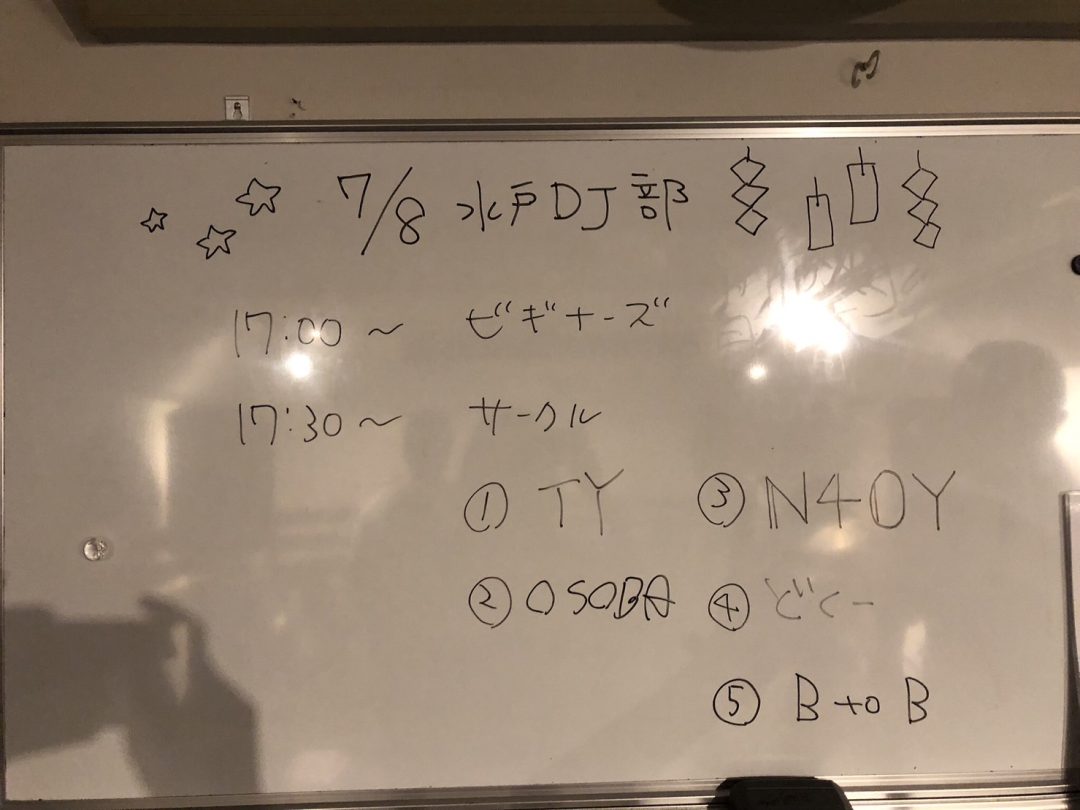 7/8 水戸DJ部
17:00～ ビギナーズ
17:30～ サークル
① TY
② OSOBA
③ N40Y
④ どくー
⑤ B to B